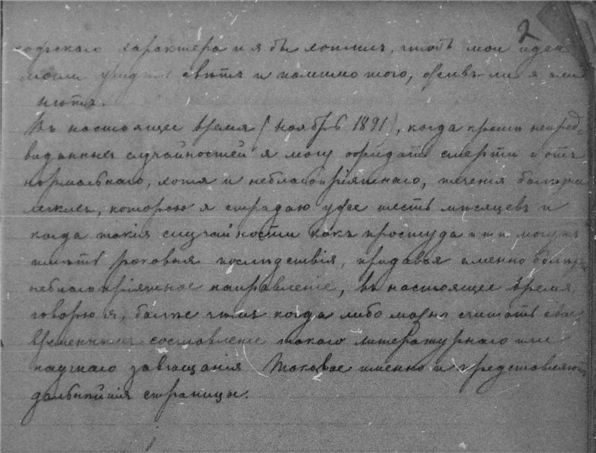 2
характера и я бы хотѣлъ, чтобъ мои идеи
могли увидѣть свѣтъ и помимо того, буду живъ ли я или
нѣтъ.
Въ настоящее время (ноябрь 1891), когда кромѣ непред-
виданныхъ случайностей я могу ожидать смерти и отъ
нормальнаго, хотя и неблагопріятнаго, теченія болѣзни
легкихъ, которою я страдаю уже шесть мѣсяцевъ и
когда такія случайности какъ простуда и т п могутъ
имѣть роковыя послѣдствія, придавая именно болѣзни
неблагопріятное направленіе, въ настоящее время,
говорю я, болѣе чѣмъ когда либо можно считать свое
временнымъ составленіе такого литературнаго или
научнаго завѣщанія Таковое именно и представляютъ
дальнѣйшія страницы.